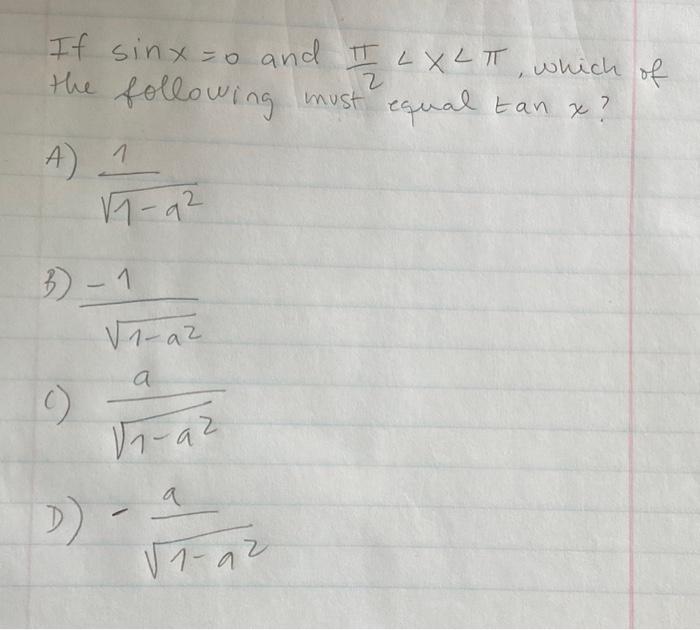 If sinx = 0 and π/2 < x < π, which of
the following must equal tan x?
A) 1/√(1-a²)
B) -1/√(1-a²)
C) a/√(1-a²)
D) - a/√(1-a²)